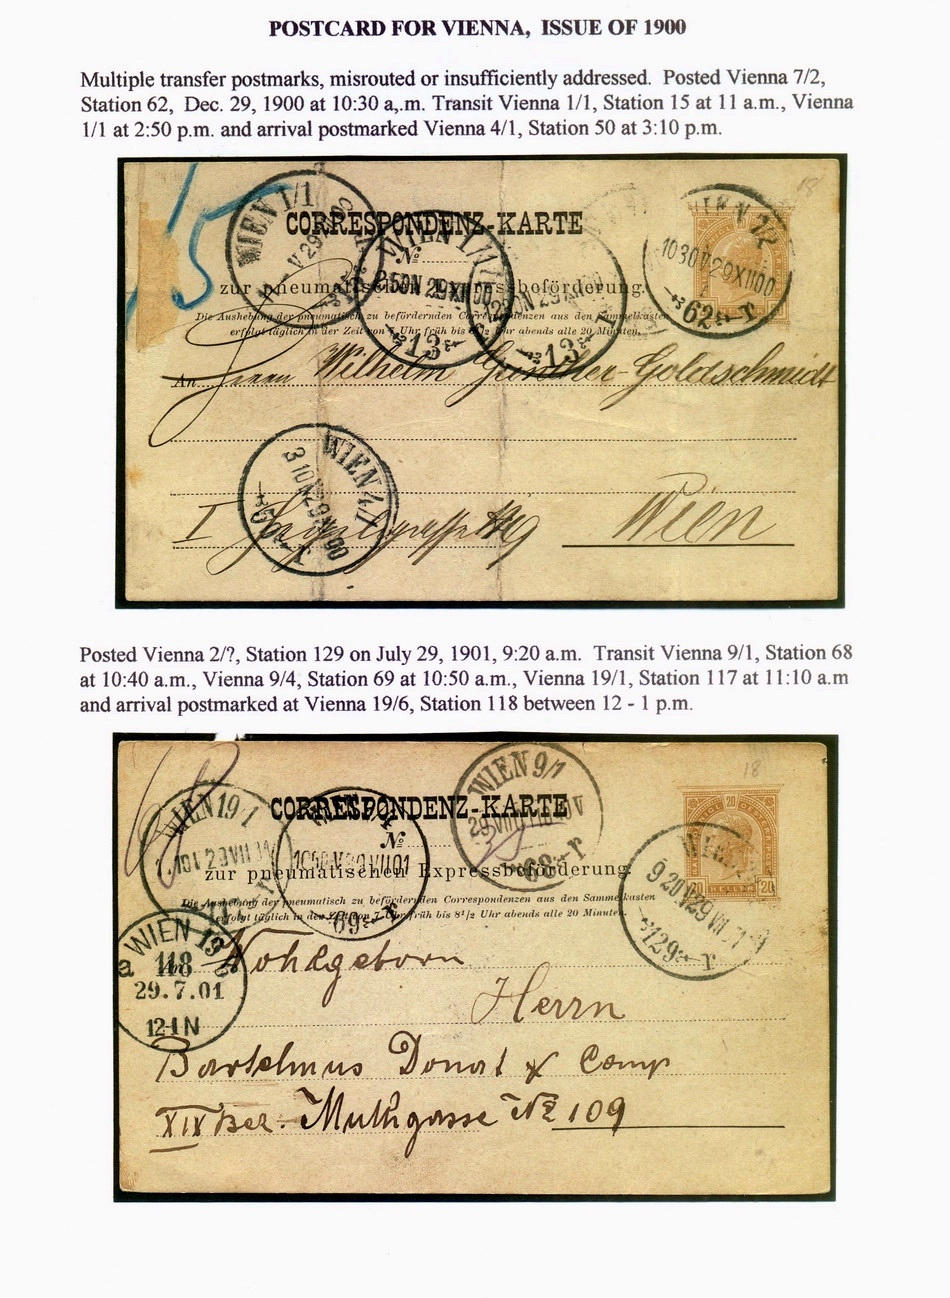 POSTCARD FOR VIENNA, ISSUE OF 1900
Multiple transfer postmarks, misrouted or insufficiently addressed. Posted Vienna 7/2,
Station 62, Dec. 29, 1900 at 10:30 a,.m. Transit Vienna 1/1, Station 15 at 11 a.m., Vienna
1/1 at 2:50 p.m. and arrival postmarked Vienna 4/1, Station 50 at 3:10 p.m.
15
WIEN 1/1
CORRESPONDENZ-KARTE
WIEN 1/1
№
250N 29 XII 00
13
29 XII 00
13
WIEN 7/2
1030V 29 XII 00
62
zur pneumatischen Expressbeförderung.
Die Aushebung der pneumatisch zu befördernden Correspondenzen aus den Sammelkasten
erfolgt täglich in der Zeit von 7 Uhr früh bis Uhr abends alle 20 Minuten.
An Herrn Wilhelm Günther-Goldschmidt
WIEN 4/1
3 10N 29 XII 00
50
I Wien
Posted Vienna 2/?, Station 129 on July 29, 1901, 9:20 a.m. Transit Vienna 9/1, Station 68
at 10:40 a.m., Vienna 9/4, Station 69 at 10:50 a.m., Vienna 19/1, Station 117 at 11:10 a.m
and arrival postmarked at Vienna 19/6, Station 118 between 12 - 1 p.m.
18
WIEN 9/1
68
WIEN 19/1
CORRESPONDENZ-KARTE
№
69
20 HELLER 20
WIEN
9 20V 29 VII 01
129
zur pneumatischen Expressbeförderung.
Die Aushebung der pneumatisch zu befördernden Correspondenzen aus den Sammelkasten
erfolgt täglich in der Zeit von 7 Uhr früh bis 8½ Uhr abends alle 20 Minuten.
WIEN 19
a 118
29.7.01
12-1N
Wohlgeborn
Herrn
Bartelmus Donat & Comp
XIX Bez. Muthgasse № 109